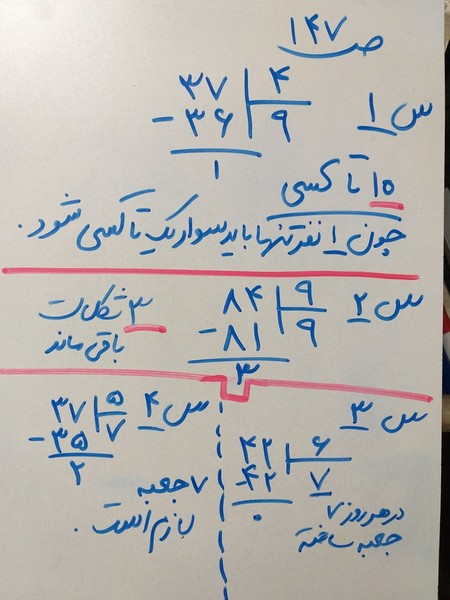 ص ۱۴۷
س ۱
۳۷ | ۴
- ۳۶ | ۹
۱
۱۰ تا کسی
چون ۱ نفر تنها باید سوار یک تاکسی شود.
س ۲
۸۴ | ۹
- ۸۱ | ۹
۳
۳ شکلات
باقی ماند
س ۳
۴۲ | ۶
- ۴۲ | ۷
۰
در هر روز ۷
جعبه ساخته
س ۴
۳۷ | ۵
- ۳۵ | ۷
۲
۷ جعبه
لازم است.